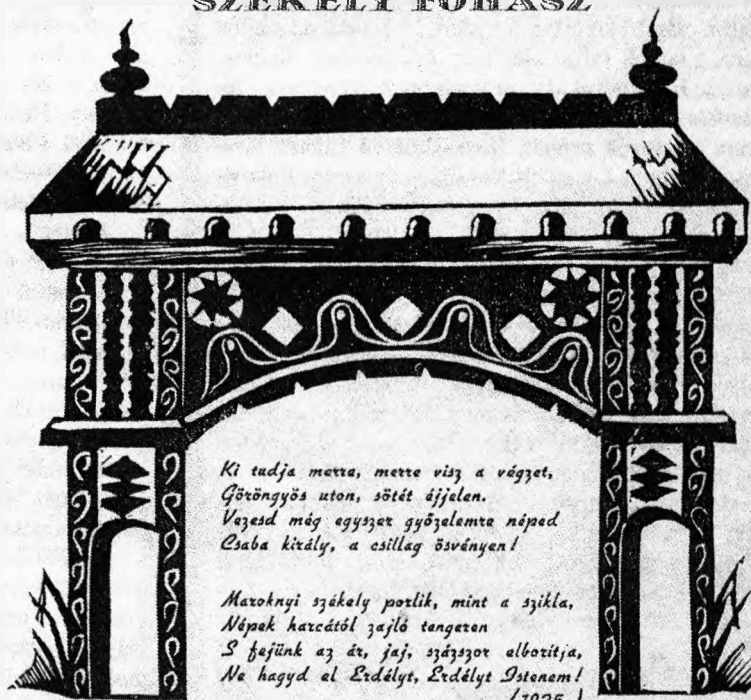 SZÉKELY FOHÁSZ
Ki tudja merre, merre visz a végzet,
Göröngyös uton, sötét éjjelen.
Vezesd még egyszer győzelemre néped
Csaba király, a csillag ösvényen!
Maroknyi székely porlik, mint a szikla,
Népek harcától zajló tengeren
S fejünk az ár, jaj, százszor elboritja,
Ne hagyd el Erdélyt, Erdélyt Istenem!
(1925.)